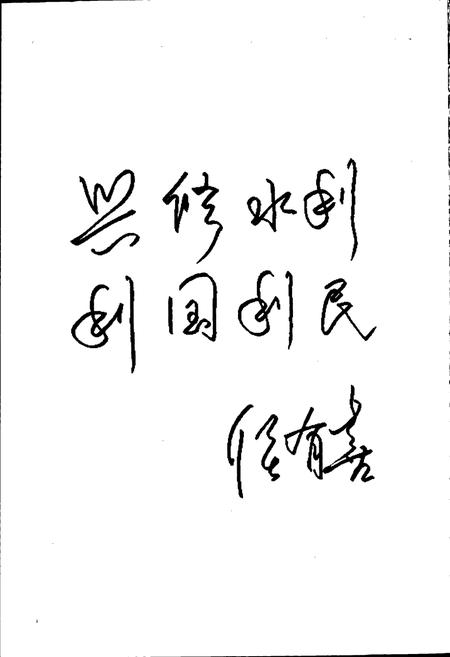 兴修水利
利国利民
侯有喜